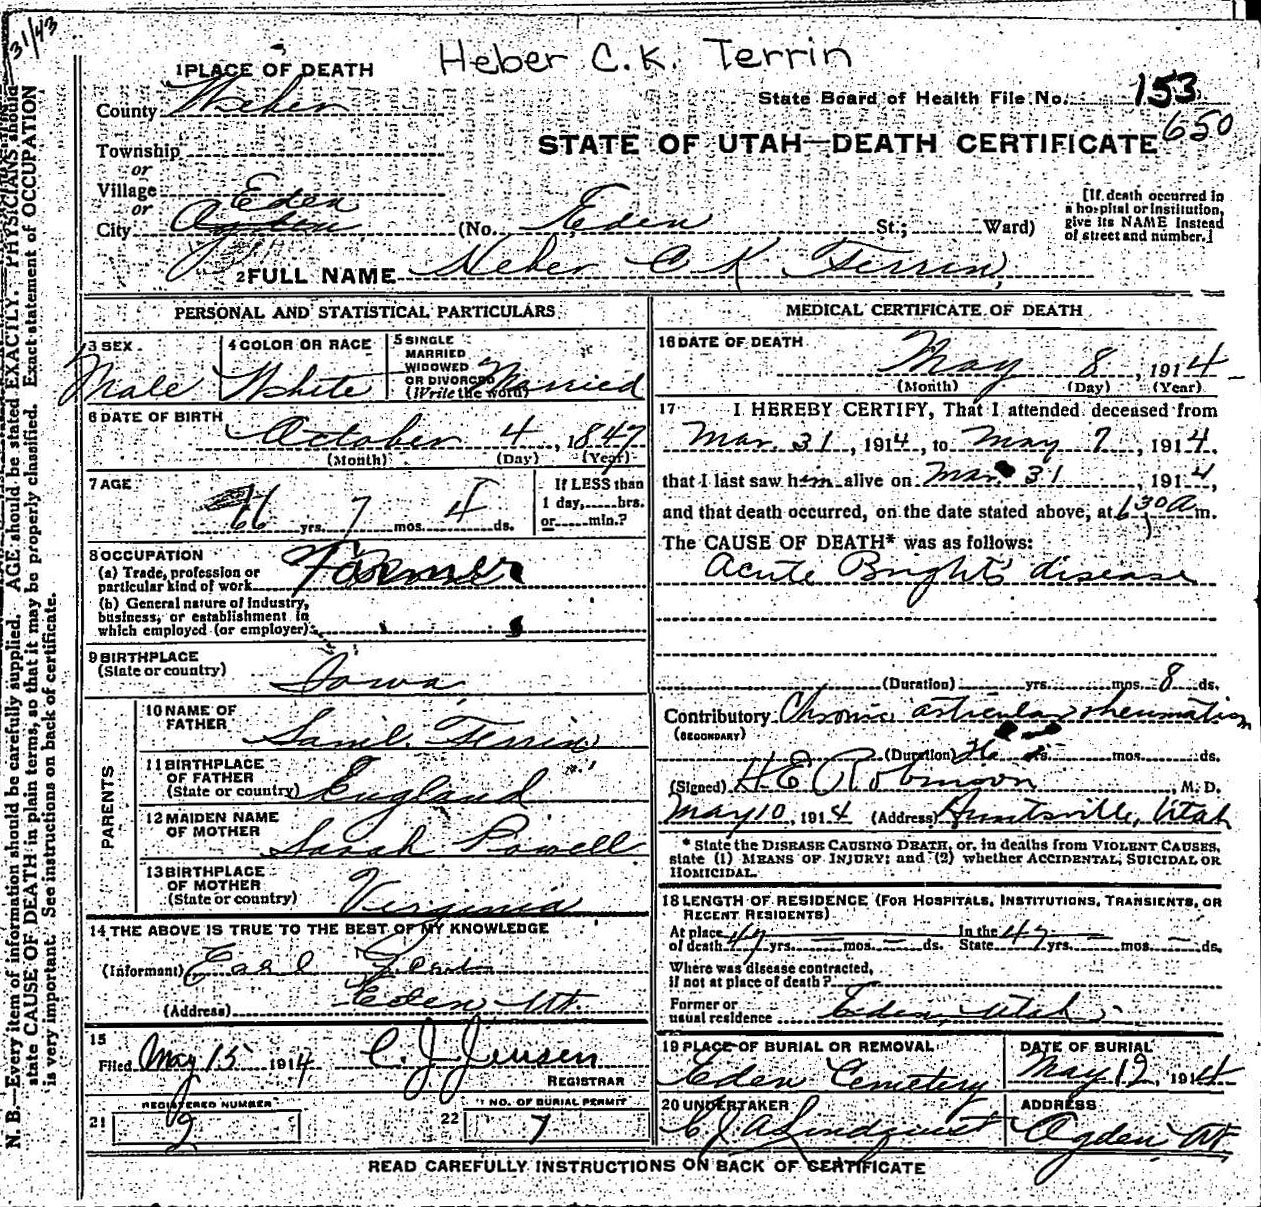 31/43
Heber C.K. Terrin
1 PLACE OF DEATH
County Weber
State Board of Health File No. 153
650
STATE OF UTAH—DEATH CERTIFICATE
Township
or
Village Eden
or
City Ogden (No. Eden St.; Ward)
[If death occurred in a hospital or institution, give its NAME instead of street and number.]
2 FULL NAME Heber C K Terrin
PERSONAL AND STATISTICAL PARTICULARS
3 SEX Male
4 COLOR OR RACE White
5 SINGLE MARRIED WIDOWED OR DIVORCED (Write the word) Married
6 DATE OF BIRTH October 4, 1847
(Month) (Day) (Year)
7 AGE 66 yrs. 7 mos. 4 ds.
If LESS than 1 day, hrs. or min.?
8 OCCUPATION
(a) Trade, profession or particular kind of work Farmer
(b) General nature of industry, business, or establishment in which employed (or employer)
9 BIRTHPLACE (State or country) Iowa
PARENTS
10 NAME OF FATHER Saml. Ferrin
11 BIRTHPLACE OF FATHER (State or country) England
12 MAIDEN NAME OF MOTHER Sarah Powell
13 BIRTHPLACE OF MOTHER (State or country) Virginia
14 THE ABOVE IS TRUE TO THE BEST OF MY KNOWLEDGE
(Informant) Earl
(Address) Eden Ut.
15
Filed May 15 1914 C. J. Jensen
REGISTRAR
21 REGISTERED NUMBER 9
22 NO. OF BURIAL PERMIT 7
MEDICAL CERTIFICATE OF DEATH
16 DATE OF DEATH May 8, 1914
(Month) (Day) (Year)
17 I HEREBY CERTIFY, That I attended deceased from
Mar. 31, 1914, to May 7, 1914,
that I last saw him alive on Mar. 31, 1914,
and that death occurred, on the date stated above, at 630 a m.
The CAUSE OF DEATH* was as follows:
Acute Bright's disease
(Duration) yrs. mos. 8 ds.
Contributory Chronic articular rheumatism
(SECONDARY)
(Duration) yrs. mos. ds.
(Signed) H. E. Robinson, M. D.
May 10, 1914 (Address) Huntsville, Utah
* State the DISEASE CAUSING DEATH, or, in deaths from VIOLENT CAUSES,
state (1) MEANS OF INJURY; and (2) whether ACCIDENTAL, SUICIDAL OR
HOMICIDAL.
18 LENGTH OF RESIDENCE (FOR HOSPITALS, INSTITUTIONS, TRANSIENTS, OR
RECENT RESIDENTS)
At place of death 47 yrs. — mos. — ds. In the State 47 yrs. — mos. — ds.
Where was disease contracted,
if not at place of death?
Former or
usual residence Eden, Utah
19 PLACE OF BURIAL OR REMOVAL Eden Cemetery
DATE OF BURIAL May 12, 1914
20 UNDERTAKER C J A Lindquist
ADDRESS Ogden Ut
READ CAREFULLY INSTRUCTIONS ON BACK OF CERTIFICATE
N. B.—Every item of information should be carefully supplied. AGE should be stated EXACTLY. PHYSICIANS should
state CAUSE OF DEATH in plain terms, so that it may be properly classified. Exact statement of OCCUPATION
is very important. See instructions on back of certificate.